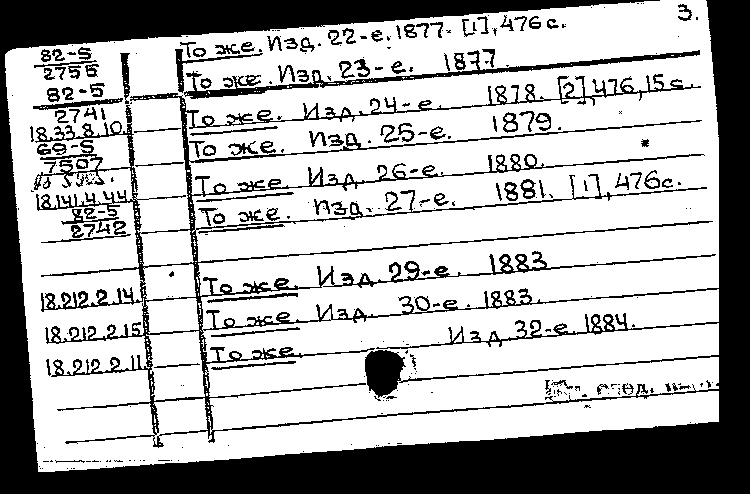 3.
82-5 То же. Изд. 22-е. 1877. [1], 476 с.
2755 То же. Изд. 23-е. 1877.
82-5
2741 То же. Изд. 24-е. 1878. [2], 476, 15 с.
18.33.8.10. То же. Изд. 25-е. 1879.
69-5
7507 То же. Изд. 26-е. 1880.
18.141.4.44 То же. Изд. 27-е. 1881. [1], 476с.
82-5
2742
18.212.2.14. То же. Изд. 29-е. 1883
18.212.2.15 То же. Изд. 30-е. 1883.
18.212.2.11. То же. Изд. 32-е. 1884.
след.